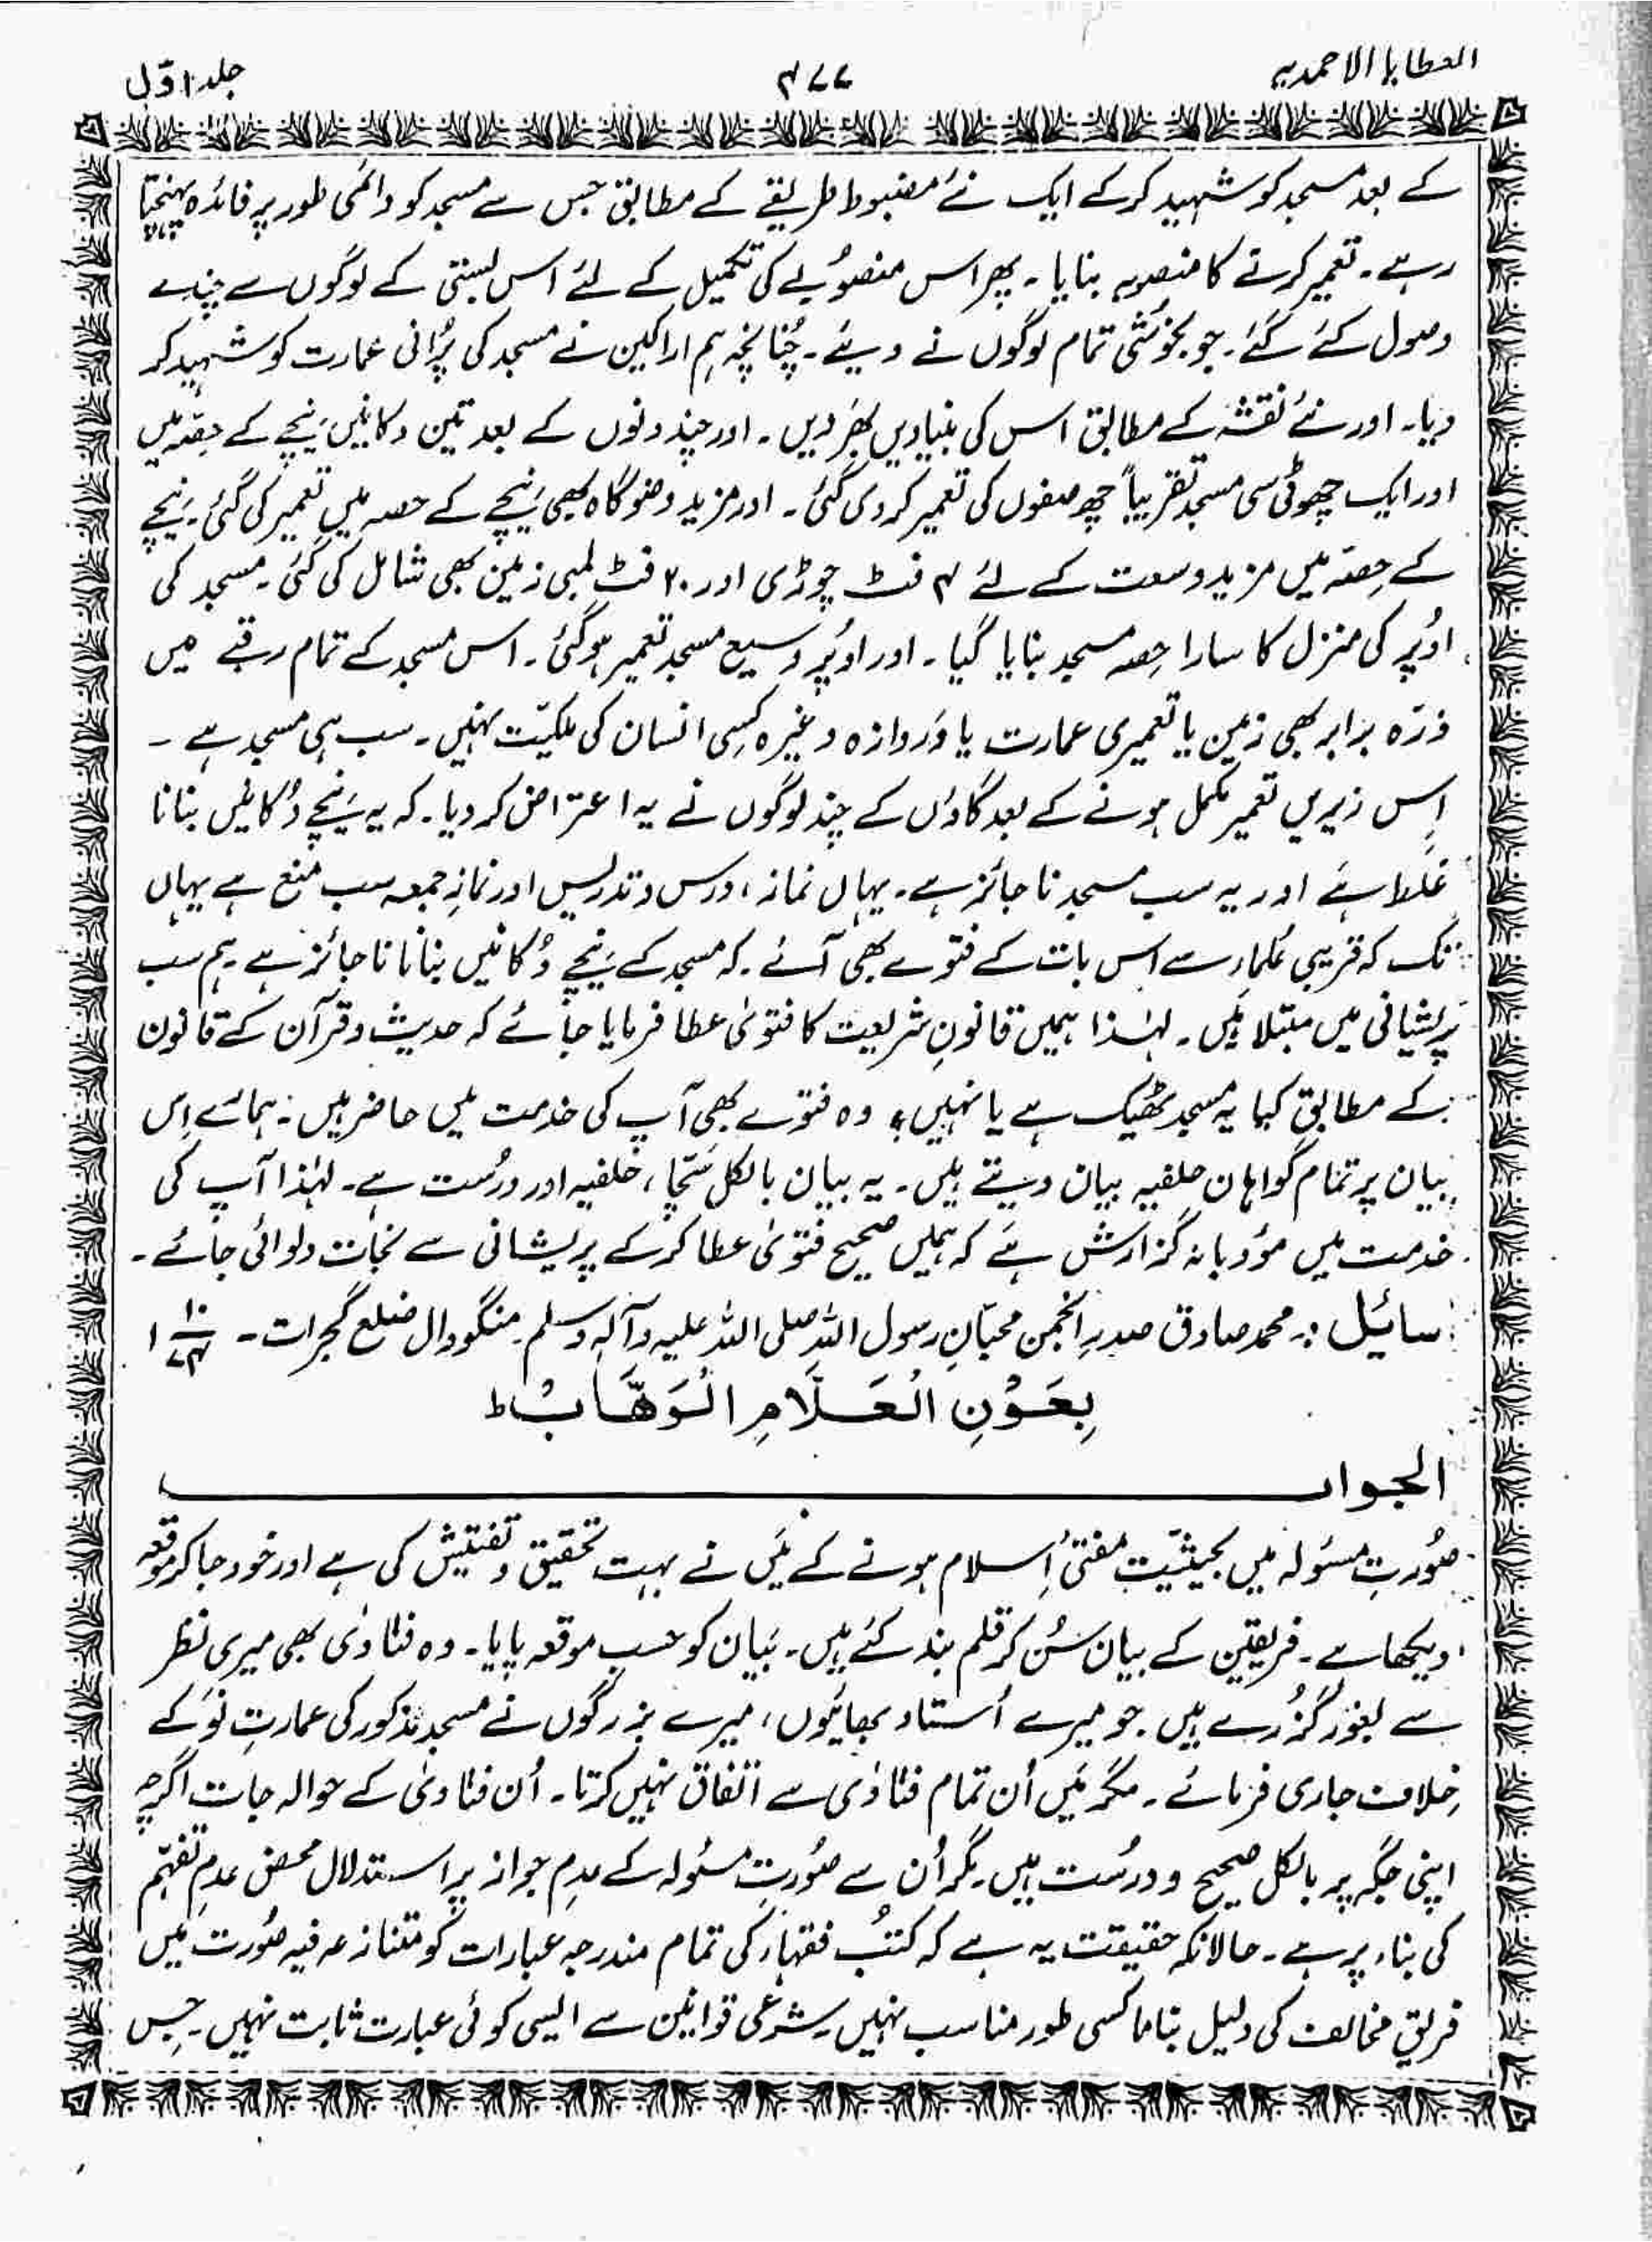 العطایا الاحمدیہ
۴۷۷
جلد اوّل
کے بعد مسجد کو شہید کرکے ایک نئے مضبوط طریقے کے مطابق جس سے مسجد کو دائمی طور پر فائدہ پہنچتا
رہے۔ تعمیر کرنے کا منصوبہ بنایا۔ پھر اس منصوُبے کی تکمیل کے لئے اس بستی کے لوگوں سے چندے
وصول کئے گئے۔ جو بخوُشی تمام لوگوں نے دیئے۔ چُنانچہ ہم اراکین نے مسجد کی پُرانی عمارت کو شہید کر
دیا۔ اور نئے نقشہ کے مطابق اس کی بنیادیں بھَر دیں۔ اور چند دنوں کے بعد تین دکانیں نیچے کے حِصّہ میں
اور ایک چھوٹی سی مسجد تقریباً چھ صفوں کی تعمیر کر دی گئی۔ اور مزید وضو گاہ بھی نیچے کے حصہ میں تعمیر کی گئی۔ نیچے
کے حِصّہ میں مزید وسعت کے لئے ۴ فٹ چوڑی اور ۲۰ فٹ لمبی زمین بھی شامل کی گئی۔ مسجد کی
اوُپر کی منزل کا سارا حِصہ مسجد بنایا گیا۔ اور اوُپر وسیع مسجد تعمیر ہو گئی۔ اس مسجد کے تمام رقبے میں
ذرّہ برابر بھی زمین یا تعمیری عمارت یا دَروازہ وغیرہ کسِی انسان کی ملکیّت نہیں۔ سب ہی مسجد ہے ۔
اِس زیریں تعمیر مکمل ہونے کے بعد گاؤں کے چند لوگوں نے یہ اعتراض کر دیا۔ کہ یہ نیچے دُکانیں بنانا
غلَط ہے اور یہ سب مسجد ناجائز ہے۔ یہاں نماز، درس و تدریس اور نمازِ جمعہ سب منع ہے یہاں
تک کہ قریبی عُلماء سے اس بات کے فتوے بھی آئے۔ کہ مسجد کے نیچے دُکانیں بنانا ناجائز ہے۔ ہم سب
پریشانی میں مبتلا ہیں۔ لہٰذا ہمیں قانونِ شریعت کا فتویٰ عطا فرمایا جائے کہ حدیث و قرآن کے قانون
کے مطابق کیا یہ مسجد ٹھیک ہے یا نہیں؟ وہ فتوے بھی آپ کی خدمت میں حاضر ہیں۔ ہمارے اِس
بیان پر تمام گواہان حلفیہ بیان دیتے ہیں۔ یہ بیان بالکل سَچّا، حَلفیہ اور درُست ہے۔ لہٰذا آپ کی
خدمت میں مؤدبانہ گزارش ہے کہ ہمیں صحیح فتویٰ عطا کرکے پریشانی سے نجات دلوائی جائے۔
سائیل :۔ محمد صادق صدرِ انجمن محبّانِ رسول اللہ صلی اللہ علیہ وآلہ وسلم۔ منگووال ضلع گجرات۔
بِعَوْنِ الْعَلَّامِ الْوَهَّابْ ط
الجواب
صوُرتِ مسئولہ میں بحیثیّت مفتئ اِسلام ہونے کے میَں نے بہت تحقیق و تفتیش کی ہے اور خود جا کر موقعہ
دیکھا ہے۔ فریقین کے بیان سُن کر قلم بند کئے ہیں۔ بَیان کو حسبِ موقعہ پایا۔ وہ فتاویٰ بھی میری نظر
سے بغور گزُرے ہیں۔ جو میرے اُستاد بھائیوں، میرے بزرگوں نے مسجد مذکور کی عمارتِ نوَ کے
خِلاف جاری فرمائے۔ مگر میَں اُن تمام فتاوٰی سے اتفاق نہیں کرتا۔ اُن فتاویٰ کے حوالہ جات اگرچہ
اپنی جگہ پر بالکل صحیح و درسُت ہیں۔ مگر اُن سے صوُرتِ مسئولہ کے عدمِ جواز پر استدلال محض عدمِ تفہّم
کی بناء پر ہے۔ حالانکہ حقیقت یہ ہے کہ کتُب فقہاء کی تمام مندرجہ عبارات کو متنازعہ فیہ صوُرت میں
فریقِ مخالف کی دلیل بنانا کسی طور مناسب نہیں۔ شرعی قوانین سے ایسی کوئی عبارت ثابت نہیں۔ جِس